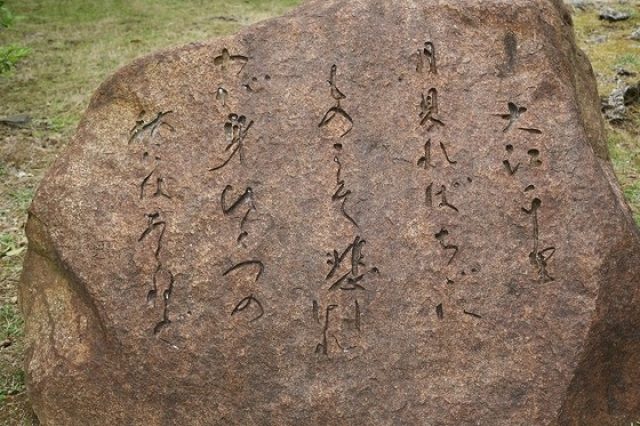 大江千里
月見ればちぢに
ものこそ悲しけれ
わが身ひとつの
秋にはあらねど